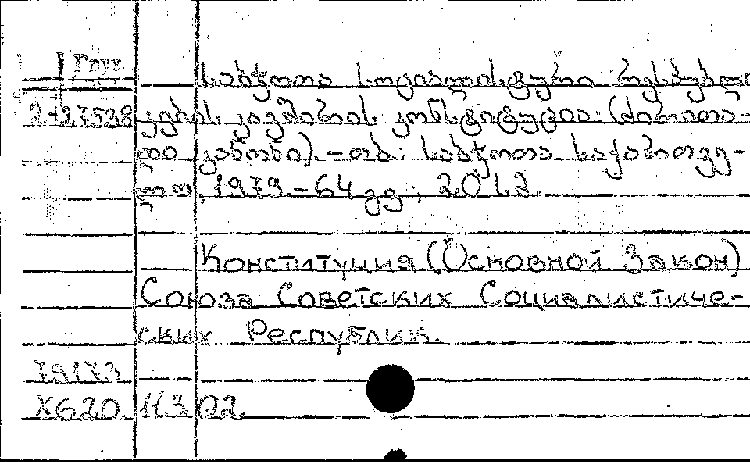 Груз.
საბჭოთა სოციალისტური რესპუბლი
2-27528 კების კავშირის კონსტიტუცია (ძირითა-
დი კანონი).-თბ.: საბჭოთა საქართვე-
ლო, 1979.-64 გვ.; 20
Конституция (Основной Закон)
Союза Советских Социалистиче-
ских Республик.
79173
X620.113 02